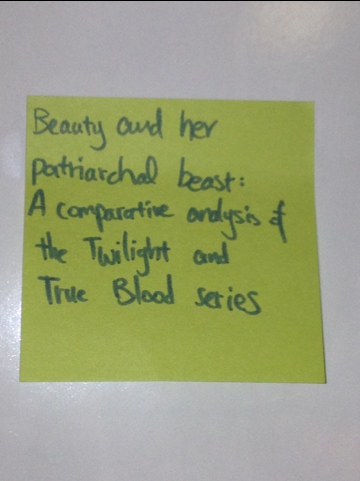 Beauty and her
patriarchal beast:
A comparative analysis of
the Twilight and
True Blood series